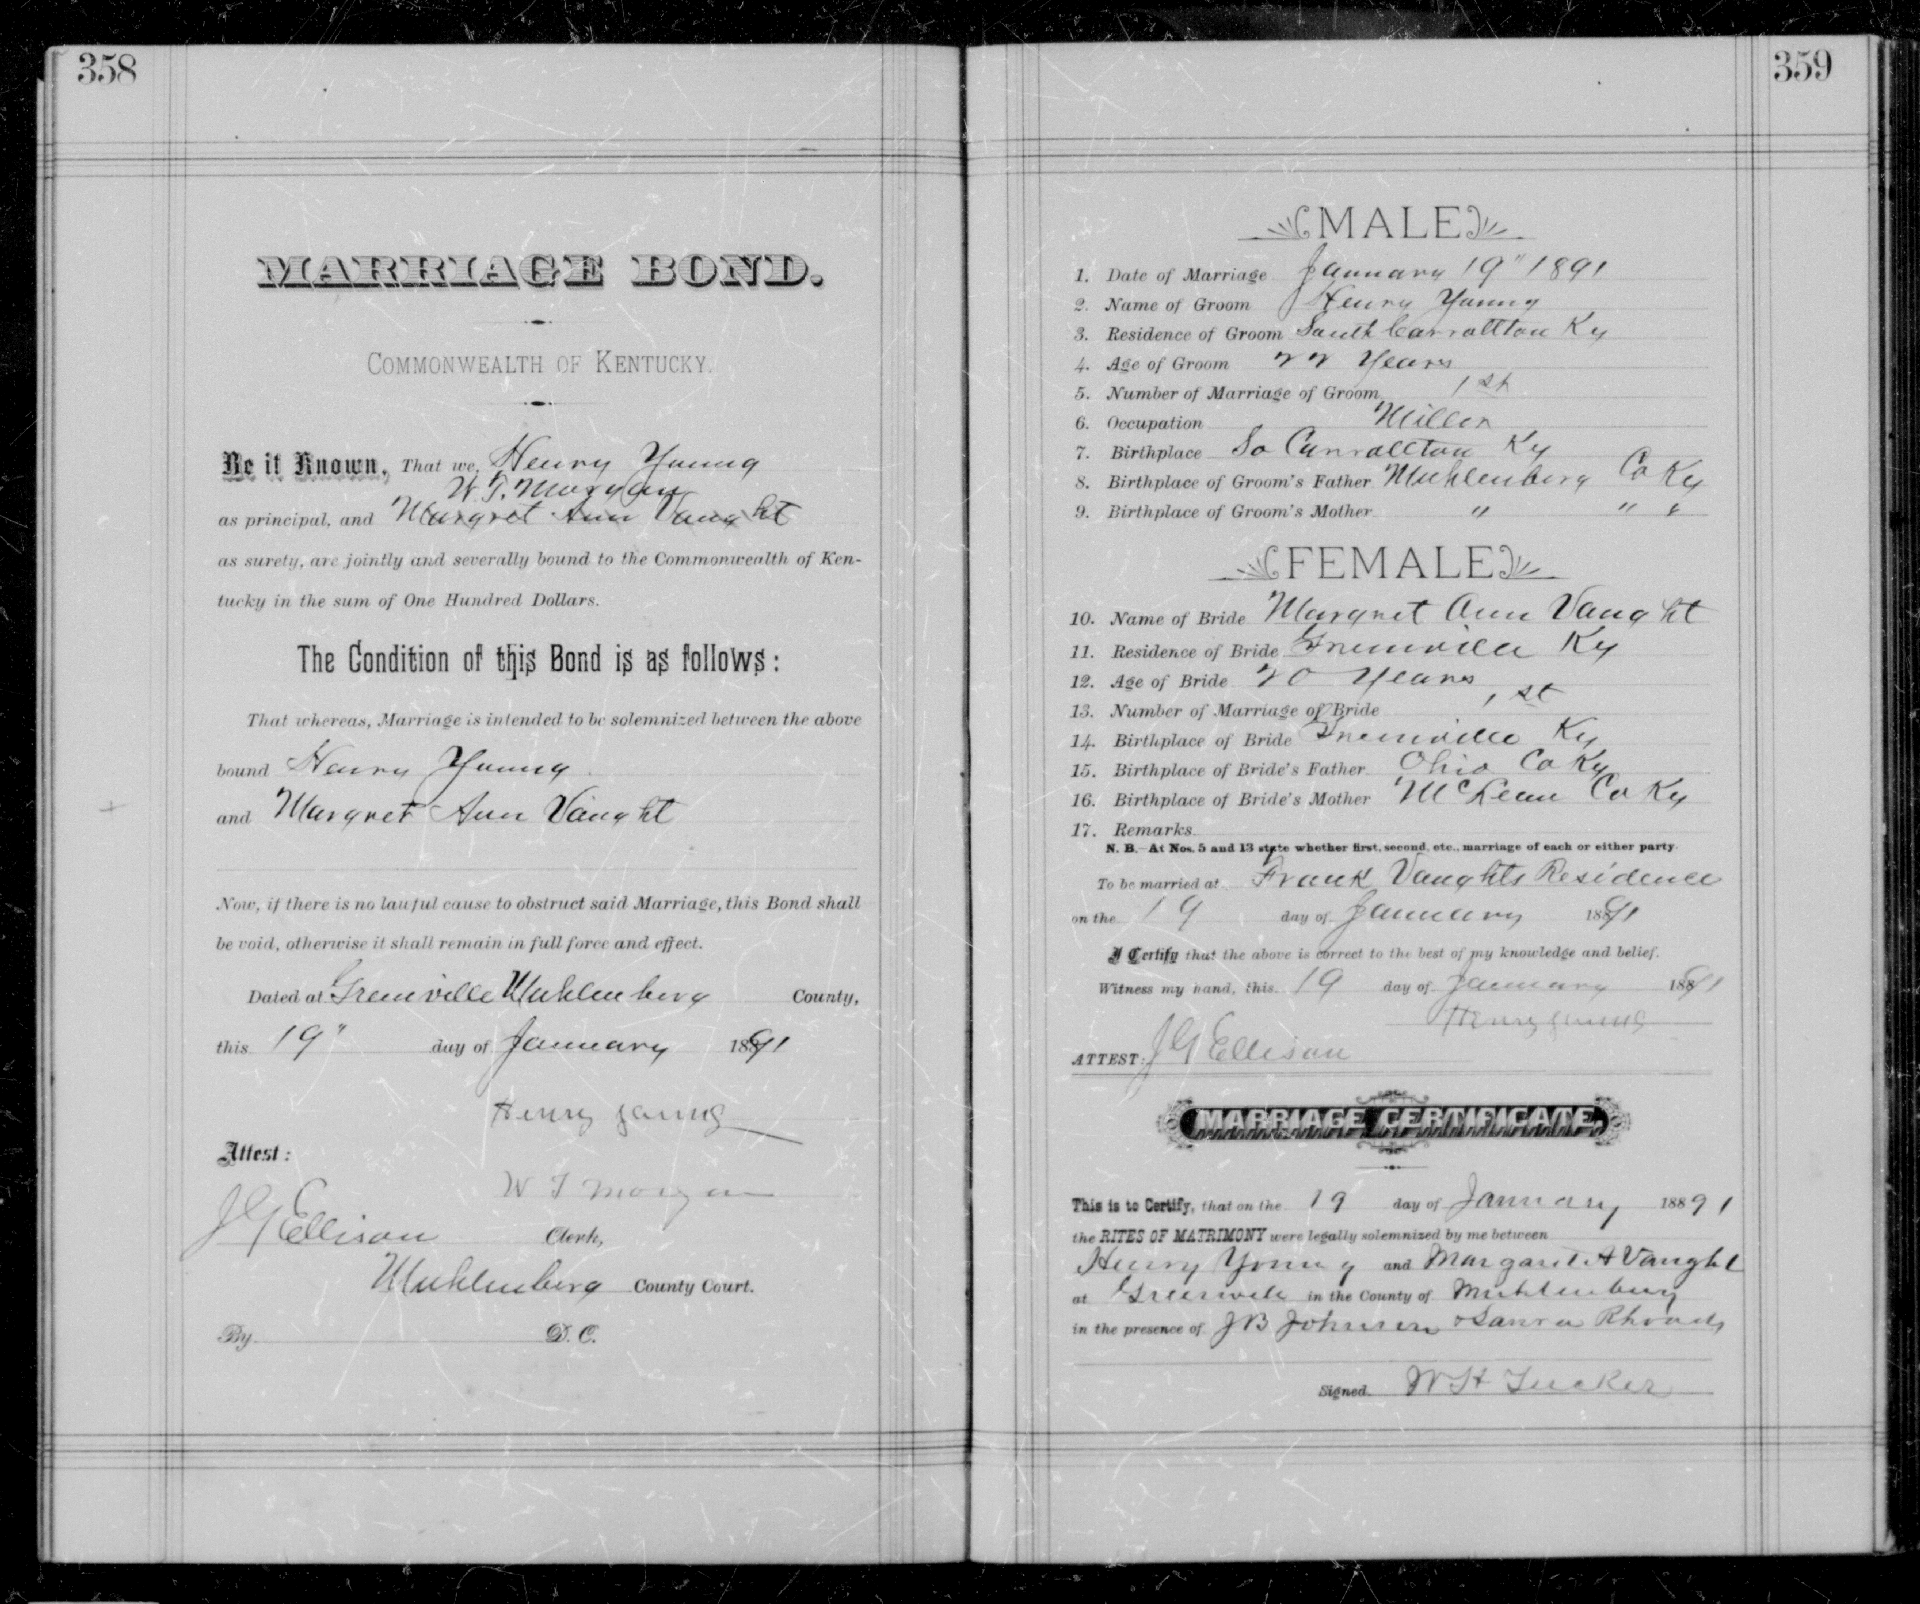 358
MARRIAGE BOND.
COMMONWEALTH OF KENTUCKY.
Be it Known, That we, Henry Young
W. T. Morgan
as principal, and Margret Ann Vaught
as surety, are jointly and severally bound to the Commonwealth of Ken-
tucky in the sum of One Hundred Dollars.
The Condition of this Bond is as follows:
That whereas, Marriage is intended to be solemnized between the above
bound Henry Young
and Margret Ann Vaught
Now, if there is no lawful cause to obstruct said Marriage, this Bond shall
be void, otherwise it shall remain in full force and effect.
Dated at Greenville Muhlenberg County,
this 19" day of January 1891
Henry Young
Attest:
W T Morgan
J G Ellison Clerk,
Muhlenberg County Court.
By D. C.
359
MALE
1. Date of Marriage January 19" 1891
2. Name of Groom Henry Young
3. Residence of Groom South Carrollton Ky
4. Age of Groom 22 Years
5. Number of Marriage of Groom 1st
6. Occupation Miller
7. Birthplace So Carrollton Ky
8. Birthplace of Groom's Father Muhlenberg Co Ky
9. Birthplace of Groom's Mother " " "
FEMALE
10. Name of Bride Margret Ann Vaught
11. Residence of Bride Greenville Ky
12. Age of Bride 20 Years
13. Number of Marriage of Bride 1st
14. Birthplace of Bride Greenville Ky
15. Birthplace of Bride's Father Ohio Co Ky
16. Birthplace of Bride's Mother McLean Co Ky
17. Remarks
N. B.—At Nos. 5 and 13 state whether first, second, etc., marriage of each or either party.
To be married at Frank Vaughts Residence
on the 19 day of January 1891
I Certify that the above is correct to the best of my knowledge and belief.
Witness my hand, this 19 day of January 1891
Henry Young
ATTEST: J G Ellison
MARRIAGE CERTIFICATE.
This is to Certify, that on the 19 day of January 18891
the RITES OF MATRIMONY were legally solemnized by me between
Henry Young and Margaret A Vaught
at Greenville in the County of Muhlenburg
in the presence of J B Johnson & Laura Rhoads
Signed W H Tucker